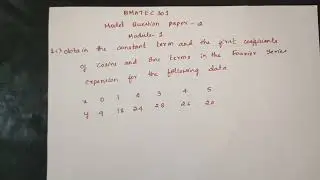 BMATEC301
Model Question paper - 2
Module - 1
obtain the constant term and the first coefficients
of cosine and sine terms in the Fourier Series
expansion for the following data
x 0 1 2 3 4 5
y 9 18 24 28 26 20